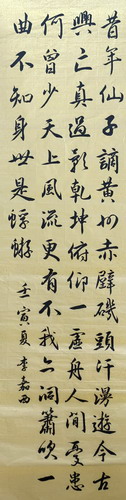 昔年仙子謫黄州赤壁磯頭汗漫遊今古
興亡真過影乾坤俯仰一虚舟人間憂患
何曾少天上風流更有不我亦洞簫吹一
曲不知身世是蜉蝣
壬寅夏李嘉西